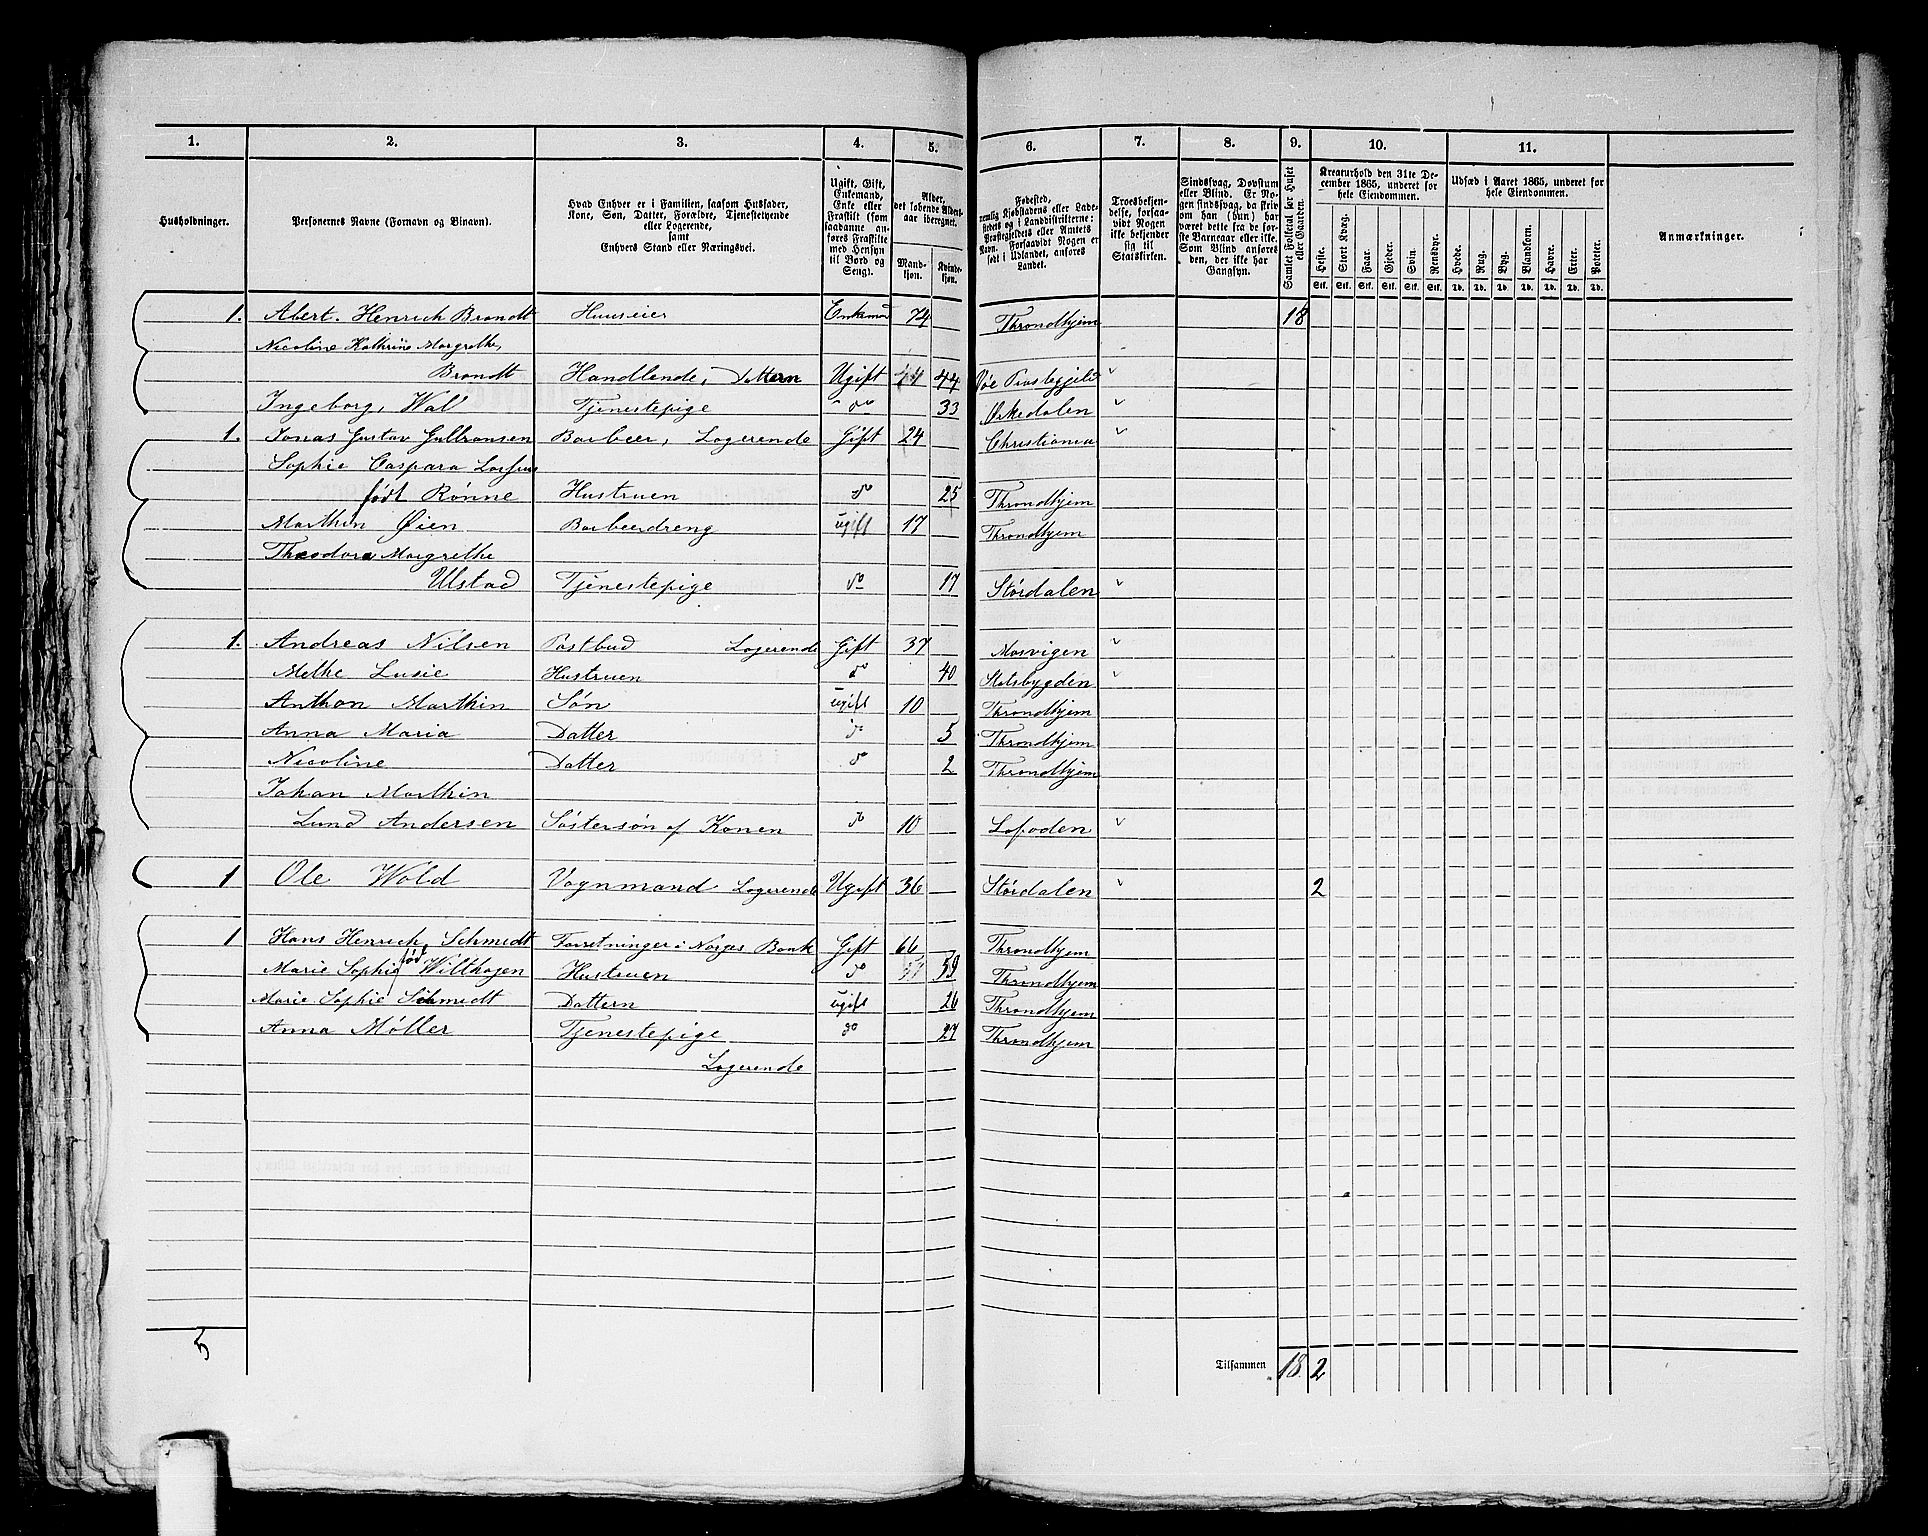 1. 2. 3. 4. 5. 6. 7. 8. 9. 10. 11.
Husholdninger.
Personernes Navne (Fornavn og Binavn).
Hvad Enhver er i Familien, saasom Husfader,
Kone, Søn, Datter, Forældre, Tjenestetyende
eller Logerende,
samt
Enhvers Stand eller Næringsvei.
Ugift, Gift,
Enkemand,
Enke eller
Fraskilt (som
saadanne an-
føres Fraskilte
med Hensyn
til Bord og
Seng).
Alder,
det løbende Alders-
aar iberegnet.
Mand-
kjøn.
Kvinde-
kjøn.
Fødested,
nemlig Kjøbstadens eller Lade-
stedets og i Landdistrikterne:
Præstegjeldets eller Amtets
Navn. Forsaavidt Nogen er
født i Udlandet, anføres
Landet.
Troesbekjen-
delse, forsaa-
vidt Nogen
ikke bekjender
sig til
Statskirken.
Sindssvag, Døvstum
eller Blind. Er No-
gen sindssvag, da skrives
om han (hun) har
været dette fra de før-
ste Barneaar eller ikke.
Som Blind anføres
den, der ikke har
Gangsyn.
Samlet Folketal for Huset
eller Gaarden.
Kreaturhold den 31te De-
cember 1865, underet for
hele Eiendommen.
Heste. Stort Kvæg. Faar. Gjeder. Svin. Rensdyr.
Stk. Stk. Stk. Stk. Stk. Stk.
Udsæd i Aaret 1865, underet for
hele Eiendommen.
Hvede. Rug. Byg. Blandkorn. Havre. Erter. Poteter.
Td. Td. Td. Td. Td. Td. Td.
Anmærkninger.
1. Abert. Henrich Brandt Huuseier Enkemd 74 Throndhjem 18
Nicoline Kathrine Margrethe,
Brandt Handlende, Dattern Ugift 44 44
Ingeborg, Wal Tjenestepige do 33 Ørkedalen
1. Jonas Gustav Gulbransen Barbeer, Logerende Gift 24 Christiania
Sophie Caspara
født Rønne Hustruen do 25 Throndhjem
Marthin Øien Barbeerdreng ugift 17 Throndhjem
Theodora Margrethe
Ulstad Tjenestepige do 17 Størdalen
1. Andreas Nilsen Postbud Logerende Gift 37 Mosvigen
Methe Lusie Hustruen do 40 Statsbygden
Anthon Marthin Søn ugift 10 Throndhjem
Anna Maria Datter do 5 Throndhjem
Nicoline Datter do 2 Throndhjem
Johan Marthin
Lund Andersen Søstersøn af Konen do 10 Lofoden
1 Ole Wold Vognmand Logerende Ugift 36 Størdalen 2
1 Hans Henrich Schmedt Forretninger i Norges Bank Gift 66 Throndhjem
Marie Sophie fød Wilthagen Hustruen do 59 Throndhjem
Marie Sophie Schmedt Dattern ugift 26 Throndhjem
Anna Møller Tjenestepige do 27 Throndhjem
Logerende
5
Tilsammen 18. 2